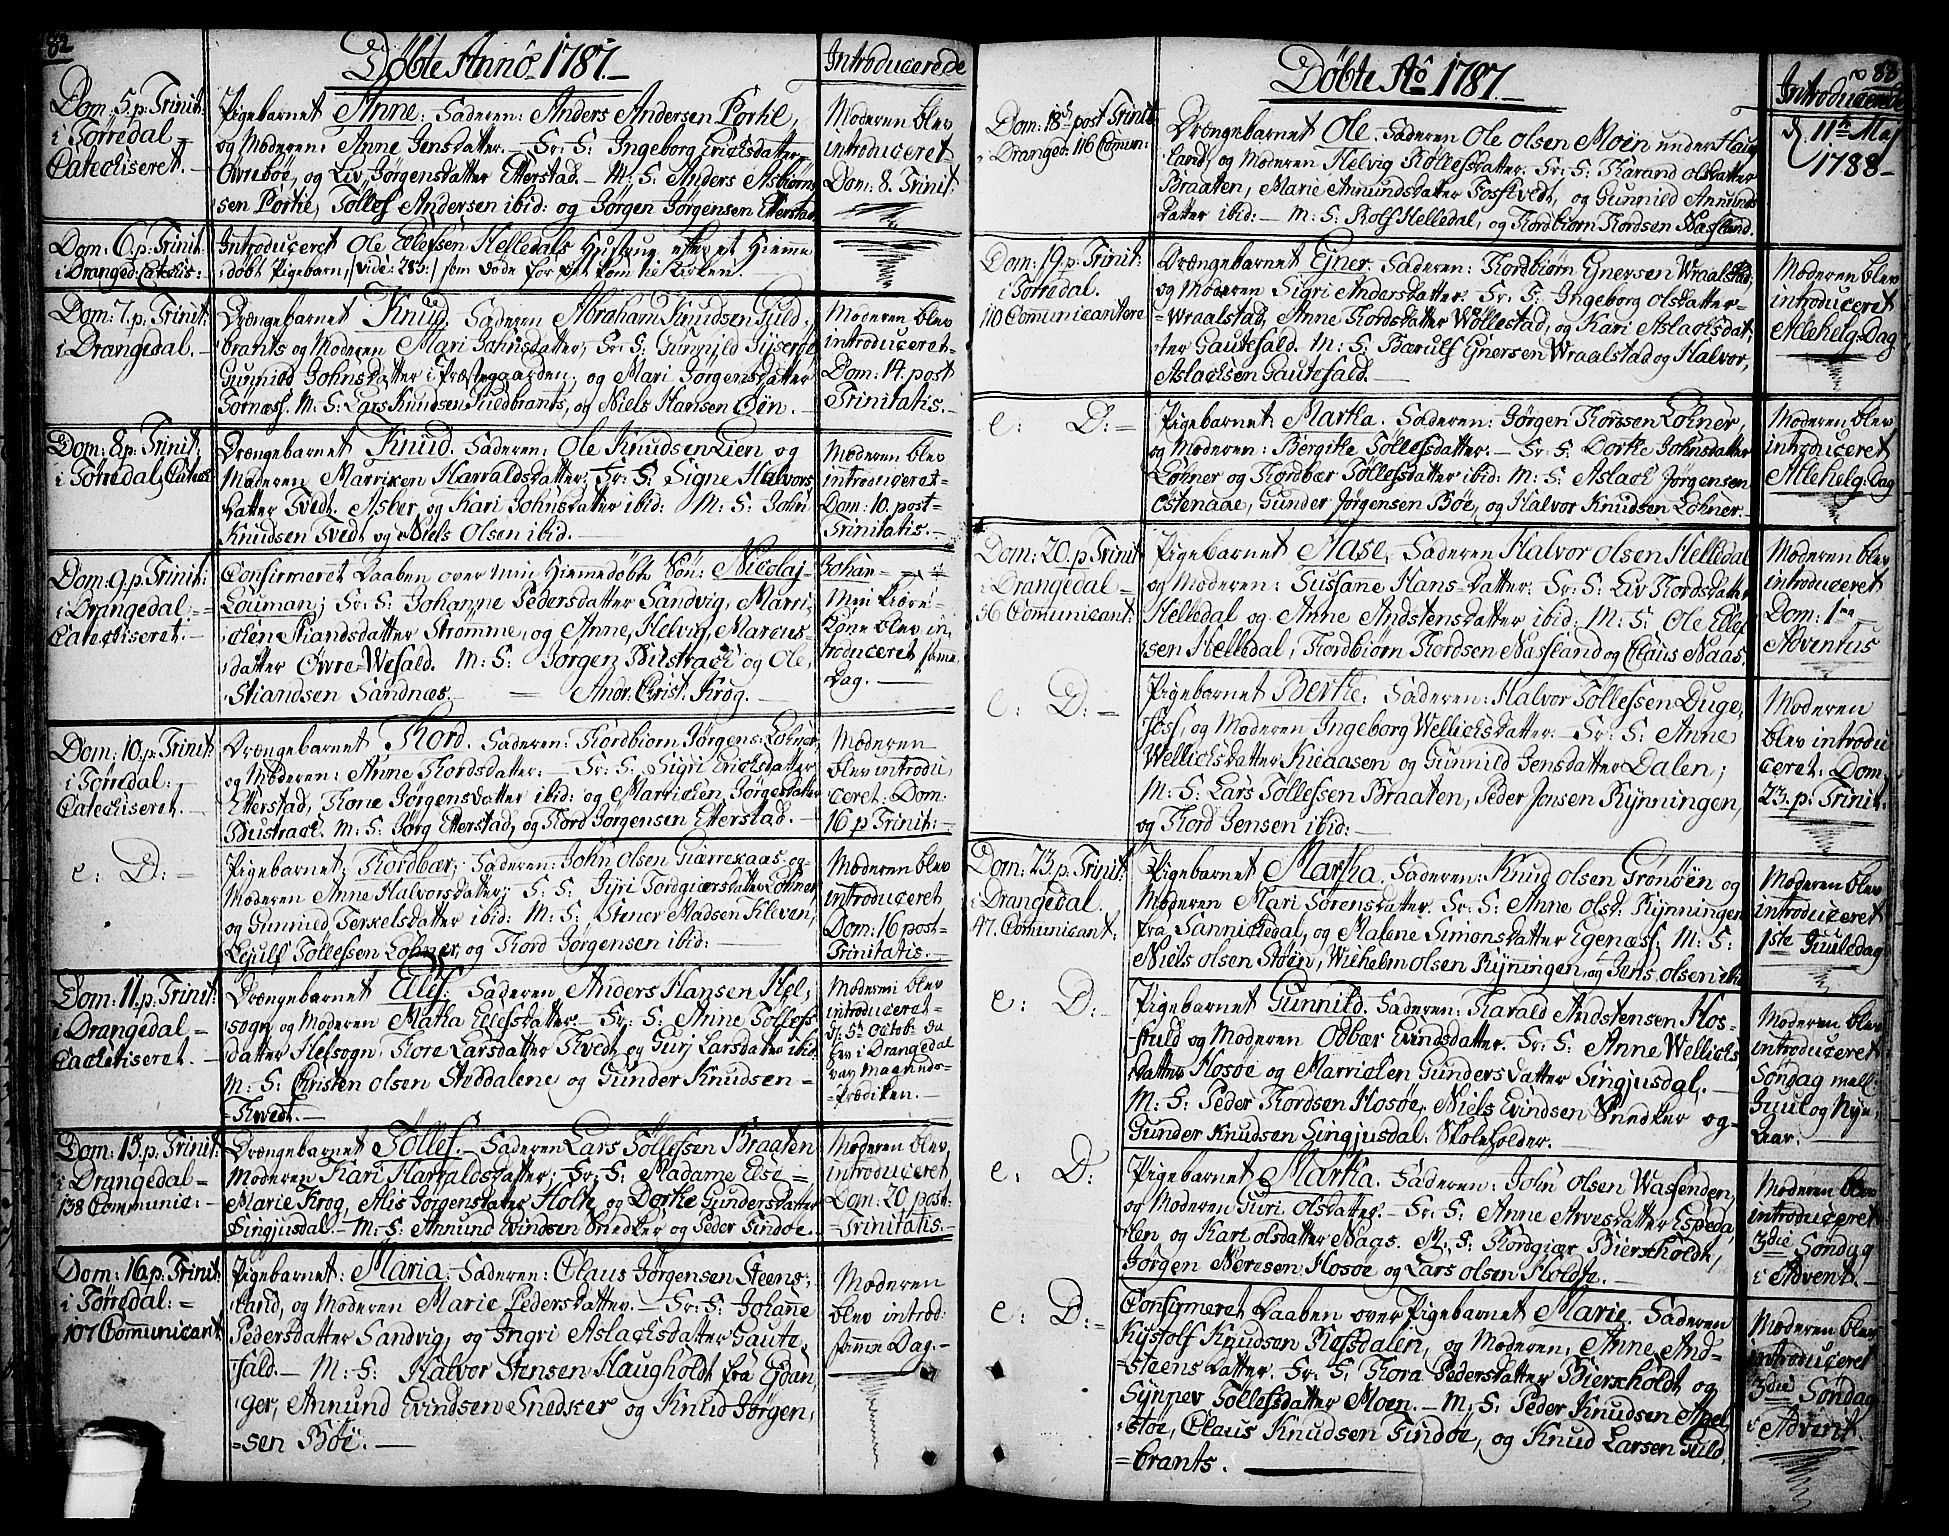 82
Döbte Annô 1787.
Introducerede
Dom: 5. p. Trinit:
i Törredal
Catechiseret.
Pigebarnet Anne: Faderen: Anders Andersen Portie,
og Moderen: Anne Jensdatter. Fr: F: Ingeborg Ericksdatter
Övreböe, og Liv Jörgensdatter Etterstad. M: F: Anders Asbiörn
sen Portie, Töllef Andersen ibid: og Jörgen Jörgensen Etterstad
Moderen blev
introduceret
Dom: 8. Trinit:
Dom: 6. p. Trinit:
i Dranged: Catechis:
Introduceret Ole Ellefsen Helledals Hustrug efter et Hiemme
döbt Pigebarn, /: vide: 283:/ som döde för det kom til Kirken.
Dom: 7. p. Trinit:
i Drangedal.
Drængebarnet Knud. Faderen Abraham Knudsen Guld,
brants og Moderen Mari Johnsdatter; Fr: F: Gunnild
Gunnild Johnsdatter i Præstegaarden, og Mari Jörgensdatter
Törnæss. M: F: Lars Knudsen Guldbrants, og Niels Hansen Öÿn.
Moderen blev
introduceret
Dom: 14. post
Trinitatis.
Dom: 8 p. Trinit,
i Törredal, Catech
Drængebarnet Knud. Faderen: Ole Knudsen Lien og
Moderen Marricken Harraldsdatter. Fr: F: Signe Halvors
datter Tvedt. Asber, og Kari Johnsdatter ibid: M: F: John
Knudsen Tvedt og Niels Olsen ibid.
Moderen blev
introduceret
Dom: 10. post
Trinitatis.
Dom: 9. p. Trinit:
i Drangedal:
Catechiseret.
Confirmeret Daaben over min Hiemmedöbte Sön: Nicolaj
Louman; Fr: F: Johanne Pedersdatter Sandvig, Marri
cken Stiandsdatter Strömme, og Anne, Helvig, Marcus
datter Övre-Wefald. M: F: Jörgen Bustrack og Ole,
Stiandsen Sandnæs. Andr: Christ. Krog.
Min kiere
Kone blev in
troduceret samme
Dag.
Dom: 10. p. Trinit
i Törredal:
Catechiseret.
Drængebarnet Tord. Faderen: Tordbiorn Jörgens: Lohner,
og Moderen: Anne Tordsdatter. Fr: F: Sigri Ericksdatter
Etterstad, Tone Jörgensdatter ibid: og Marricken, Jörgensdatter
Bustrack. M: F: Jörg Etterstad, og Tord Jörgensen Etterstad.
Moderen
blev introdu
ceret: Dom:
16 p Trinit:
e: D:
Pigebarnet; Tordbær; Faderen: John Olsen Giærrekaas og
Moderen Anne Halvorsdatter; F: F: Jyri Tordgiersdatter Lohner
og Gunnild Terkelsdatter ibid: M: F: Stener Madsen Kleven,
Lejulf Töllefsen Lohner, og Tord Jörgensen ibid:
Moderen blev
introduceret
Dom: 16 post
Trinitatis.
Dom: 11. p. Trinit:
i Drangedal
Cacletiseret.
Drængebarnet Ellef. Faderen Anders Hansen Hel
sogn og Moderen Matia Ellefsdatter. Fr: F: Anne Töllefs
datter Helsogn, Tore Larsdatter Tvedt og Gurj Larsdatter ibid:
M: F: Christen Olsen Steddalene og Gunder Knudsen
Tvedt.
Moderen blev
introduceret
d: 5t Octob: da
her i Drangedal
var Maaneds
Prædiken.
Dom: 15. p. Trinit:
i Drangedal
138 Communic:
Drængebarnet Töllef. Faderen Lars Töllefsen Braaten
Moderen Kari Harraldsdatter; Fr: F: Madame Else
Marie Krog, Alis Jörgensdatter Holte og Dortie Gundersdatter
Singjusdal. M: F: Amund Evindsen Snedker og Peder Tindöe.
Moderen blev,
introduceret
Dom: 20. post
Trinitatis.
Dom: 16. p. Trinit:
i Törredal:
107 Communicant
Pigebarnet: Maria. Faderen: Claus Jörgensen Steens,
land, og Moderen Marie Pedersdatter. Fr: F: Johane
Pedersdatter Sandvig, og Ingri Aslacksdatter Gaute,
fald. M: F: Halvor Stensen Haugholdt fra Eidan,
ger, Amund Evindsen Snedker og Knud Jörgen,
sen Böe.
Moderen
blev introd:
samme Dag.
83
Döbte Aô 1787.
Introducerede
Dom: 18d post Trinit:
i Dranged: 116 Comun:
Drængebarnet Ole. Faderen Ole Olsen Moen under Haug
land, og Moderen Helvig Rollefsdatter. Fr: F: Karand Olsdatter
Braaten, Marie Amundsdatter Fosstvedt, og Gunnild Amunds
datter ibid: M: F: Rolf Helledal, og Tordbiörn Tordsen Naasland.
d 11te Maj
1788
Dom: 19. p. Trinit:
i Törredal.
110 Communicantere
Drængebarnet Ejner. Faderen: Tordbiörn Ejnersen Wraalstad,
og Moderen Sigri Andersdatter. Fr: F: Ingeborg Olsdatter
Wraalstad, Anne Tordsdatter Wöllestad, og Kari Aslachsdat
ter Gautefald. M: F: Bærulf Ejnersen Wraalstad og Halvor,
Aslacksen Gautefald.
Moderen blev
introduceret
Allehelg: Dag
e: D:
Pigebarnet: Martha. Faderen: Jörgen Tordsen Lohner,
og Moderen: Bergithe Töllefsdatter. Fr: F: Dorthe Johnsdatter
Lohner og Tordbær Töllefsdatter ibid: M: F: Aslack Jörgensen
Östenaae, Gunder Jörgensen Böe, og Halvor Knudsen Lohner.
Moderen blev
introduceret
Allehelg: Dag
Dom: 20. p. Trinit
i Drangedal
56 Communicant:
Pigebarnet: Aase, Faderen Halvor Olsen Helledal
og Moderen: Sussane Hans-datter. Fr: F: Liv Tordsdatter
Helledal og Anne Andstensdatter ibid: M: F: Ole Ellef
sen Helledal, Tordbiörn Tordsen Naasland og Claus Naas.
Moderen blev
introduceret
Dom: 1me
Adventus
e: D:
Pigebarnet Berthe. Faderen: Halvor Töllefsen Duge,
foss, og Moderen Ingeborg Wellicksdatter. Fr: F: Anne
Wellichsdatter Kieaasen og Gunnild Jensdatter Dalen;
M: F: Lars Töllefsen Braaten, Peder Jonsen Rynningen,
og Tord Jensen ibid:
Moderen
blev introdu
ceret: Dom
23. p. Trinit:
Dom: 23. p. Trinit:
i Drangedal.
47. Communicant:
Pigebarnet Martha. Faderen: Knud Olsen Grönöen og
Moderen Mari Sörensdatter. Fr: F: Anne Olsd: Rynningen
fra Sannickedal, og Malene Simonsdatter Egenæss: M: F:
Niels Olsen Stöen, Wilhelm Olsen Rynningen, og Jens Olsen ibid
Moderen blev
introduceret
1ste Juuledag
e: D:
Pigebarnet Gunnild. Faderen: Harald Andstensen Hos
fuld og Moderen Odbær Evindsdatter. Fr: F: Anne Wellicks
datter Hosöe og Marricken Gundersdatter Singjusdal.
M: F: Peder Tordsen Hosöe, Niels Evindsen Snedker og
Gunder Knudsen Singjusdal: Skoleholder.
Moderen blev
introduceret
Söndag mell:
Juul og Nyt
Aar.
e: D:
Pigebarnet Martha. Faderen: John Olsen Wassenden,
og Moderen Guri Olsdatter. Fr: F: Anne Arvesdatter Espeda,
len og Kari Olsdatter Naas. M: F: Tordgiær Bierkholdt,
Jörgen Neresen Hosöe og Lars Olsen Holdte.
Moderen blev
introduceret
3die Söndag
i Advent.
e: D:
Confirmeret Daaben over Pigebarnet Marie. Faderen
Kystolf Knudsen Rossdalen, og Moderen, Anne And
steensdatter. Fr: F: Thora Pedersdatter Bierkholdt og
Synnev Töllefsdatter Moen. M: F: Peder Knudsen Apel,
stöe, Claus Knudsen Tindöe, og Knud Larsen Guld,
brants.
Moderen blev
introduceret
3die Söndag
i Advent.